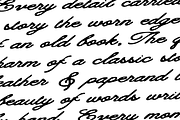 Every detail carried
story the worn edge
f an old book. The q
harm of a classic sto
eather & paperand i
beauty of words writ
by hand. Every mom